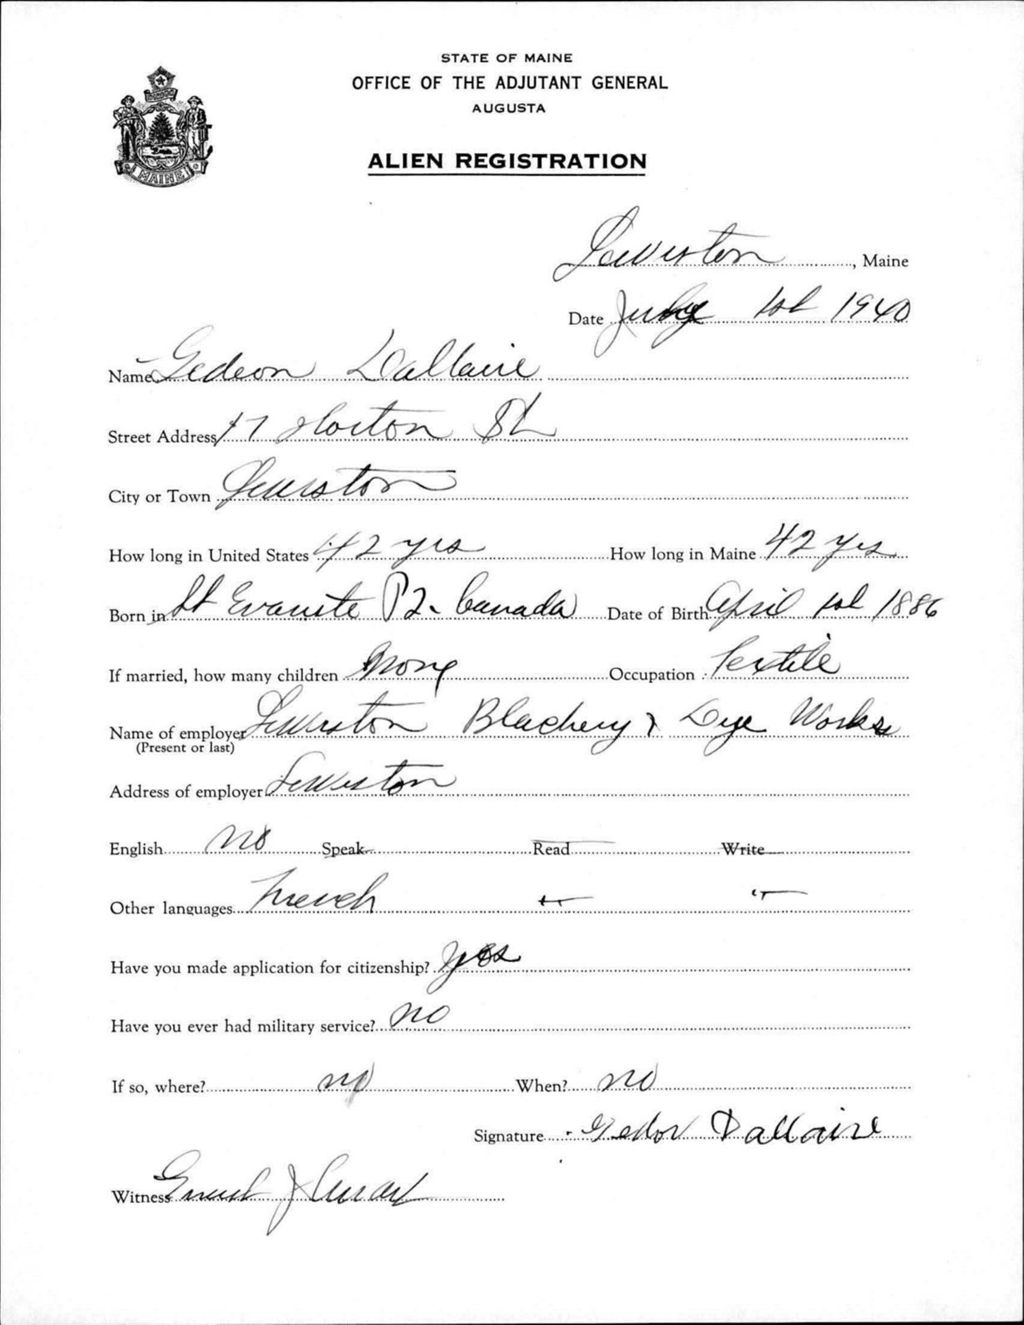 STATE OF MAINE
OFFICE OF THE ADJUTANT GENERAL
AUGUSTA
ALIEN REGISTRATION
MAINE
Lewiston, Maine
Date July 1st 1940
Name Gedeon Dallaire
Street Address 17 Horton St
City or Town Lewiston
How long in United States 42 yrs How long in Maine 42 yrs
Born in St Evariste P Q. Canada Date of Birth April 1st 1886
If married, how many children None Occupation Textile
Name of employer Lewiston Blachery & Dye Works
(Present or last)
Address of employer Lewiston
English No Speak Read Write
Other languages French " "
Have you made application for citizenship? Yes
Have you ever had military service? No
If so, where? no When? no
Signature Gedor Dallaire
Witness